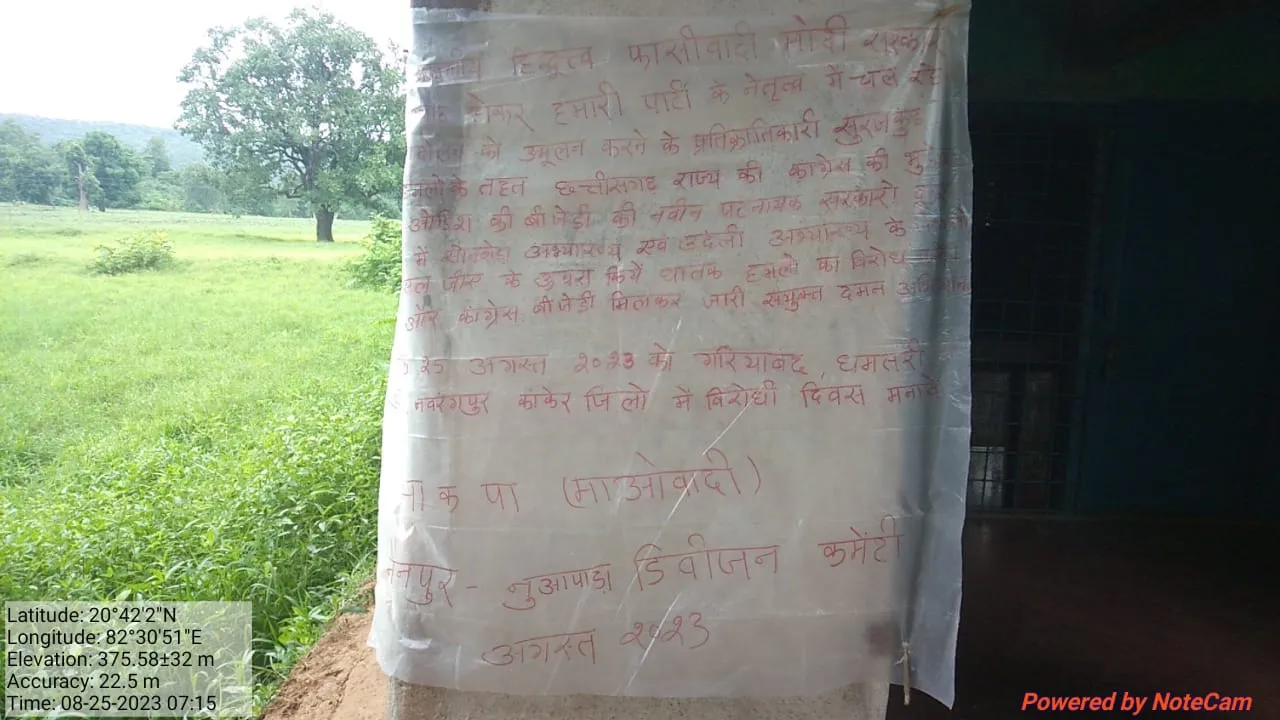 हिन्दुत्व फासीवादी मोदी सरकार
होकर हमारी पार्टी के नेतृत्व में चल रहे
को उमूलन करने के प्रतिक्रांतिकारी सुरजकुंड
के तहत छत्तीसगढ़ राज्य की कांग्रेस की
ओडिशा की बीजेडी की नवीन पटनायक सरकारो
में सीतानदी अभ्यारण्य एवं उदंती अभ्यारण्य के
के ऊपर किये घातक हमलो का विरोध
और कांग्रेस, बीजेडी मिलकर जारी संयुक्त दमन
25 अगस्त 2023 को गरियाबंद, धमतरी
नवरंगपुर कांकेर जिलो में विरोधी दिवस मनावे
भा क पा (माओवादी)
नुआपाड़ा डिवीजन कमेंटी
अगस्त 2023
Latitude: 20°42'2"N
Longitude: 82°30'51"E
Elevation: 375.58±32 m
Accuracy: 22.5 m
Time: 08-25-2023 07:15
Powered by NoteCam